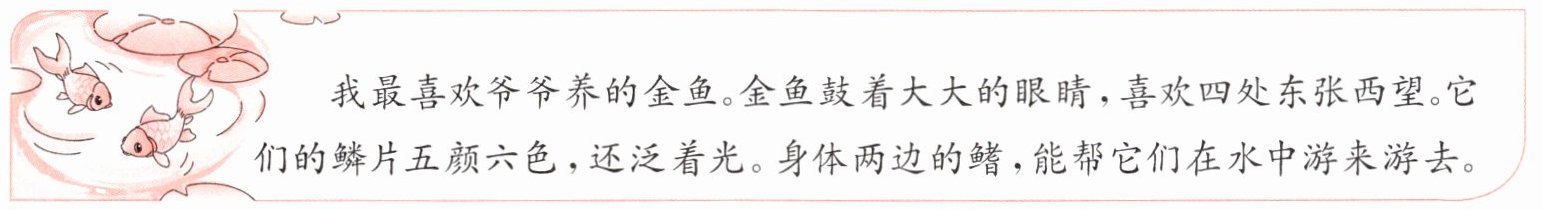 我最喜欢爷爷养的金鱼。金鱼鼓着大大的眼睛，喜欢四处东张西望。它
们的鳞片五颜六色，还泛着光。身体两边的鳍，能帮它们在水中游来游去。